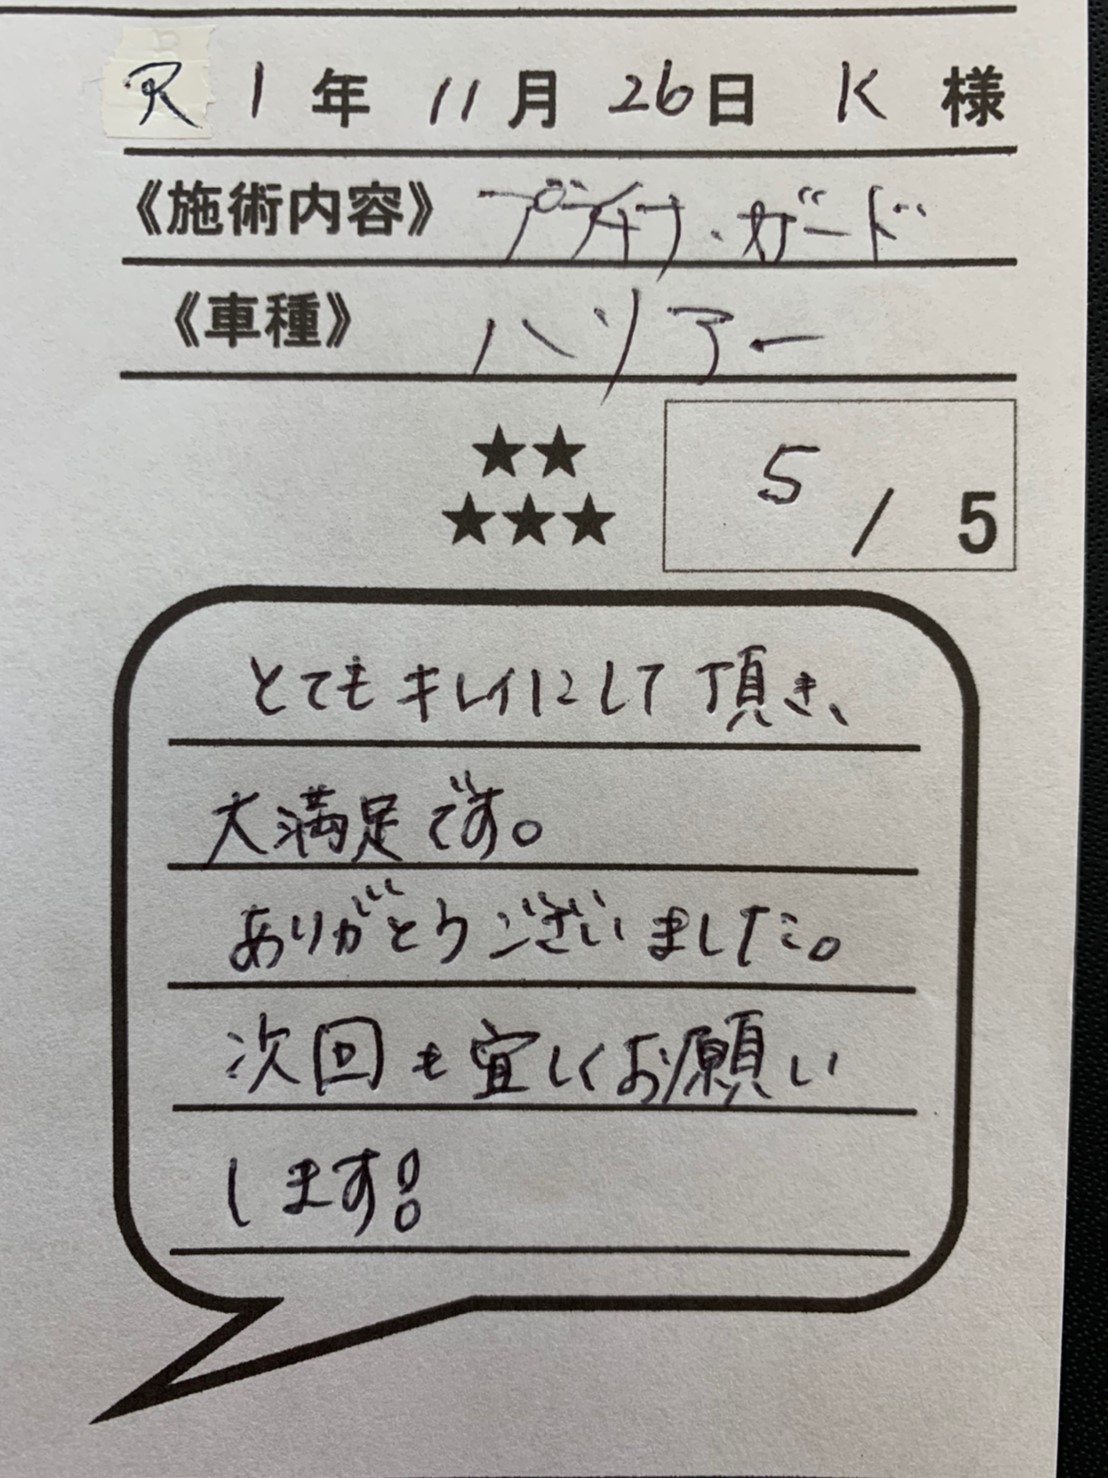 R 1年 11月 26日 K 様
《施術内容》 プラチナ・ガード
《車種》 ハリアー
★★
★★★
5 / 5
とてもキレイにして頂き、
大満足です。
ありがとうございました。
次回も宜しくお願い
します!